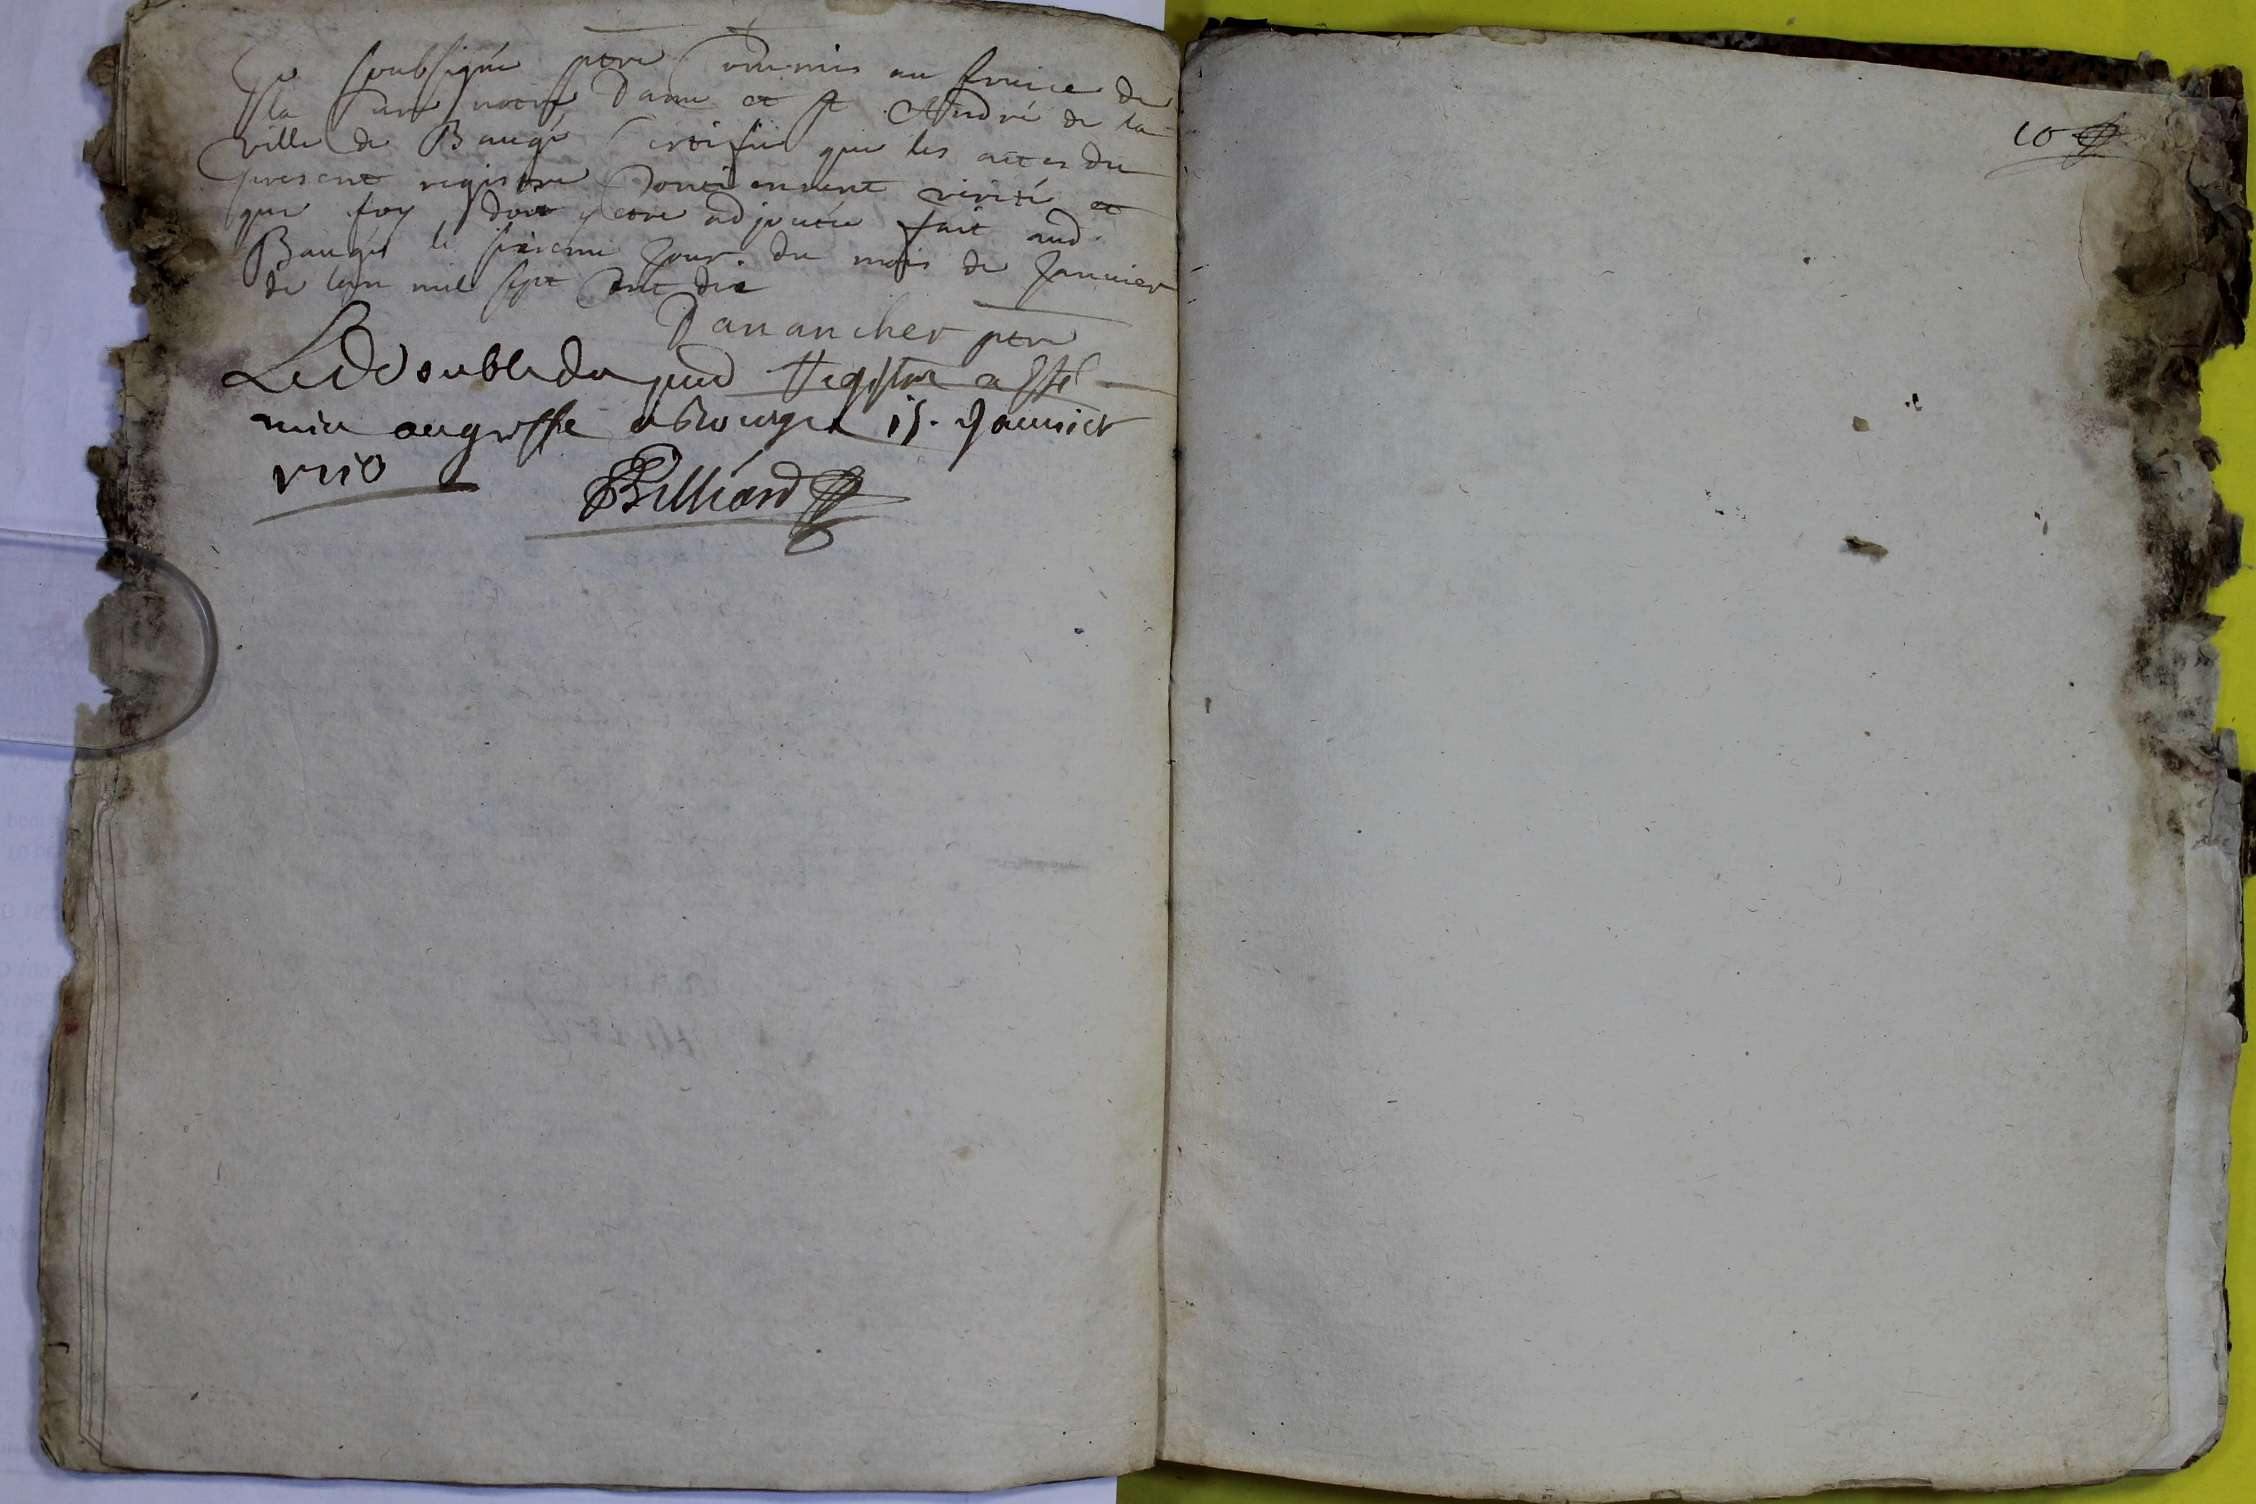 Je soubsigné ptre Commis au service de
la Cure notre Dame et st André de la
ville de Baugé Certifie que les actes du
present registre Contiennent verité et
que foy doit y etre adjoutée fait aud.
Baugé le sixieme Jour du mois de Janvier
de lan mil sept Cent dix
Danancher ptre
Le Double du pnt Registre a Esté
mis au greffe a Bourg ce 15. Janvier
1710
Billiard
10